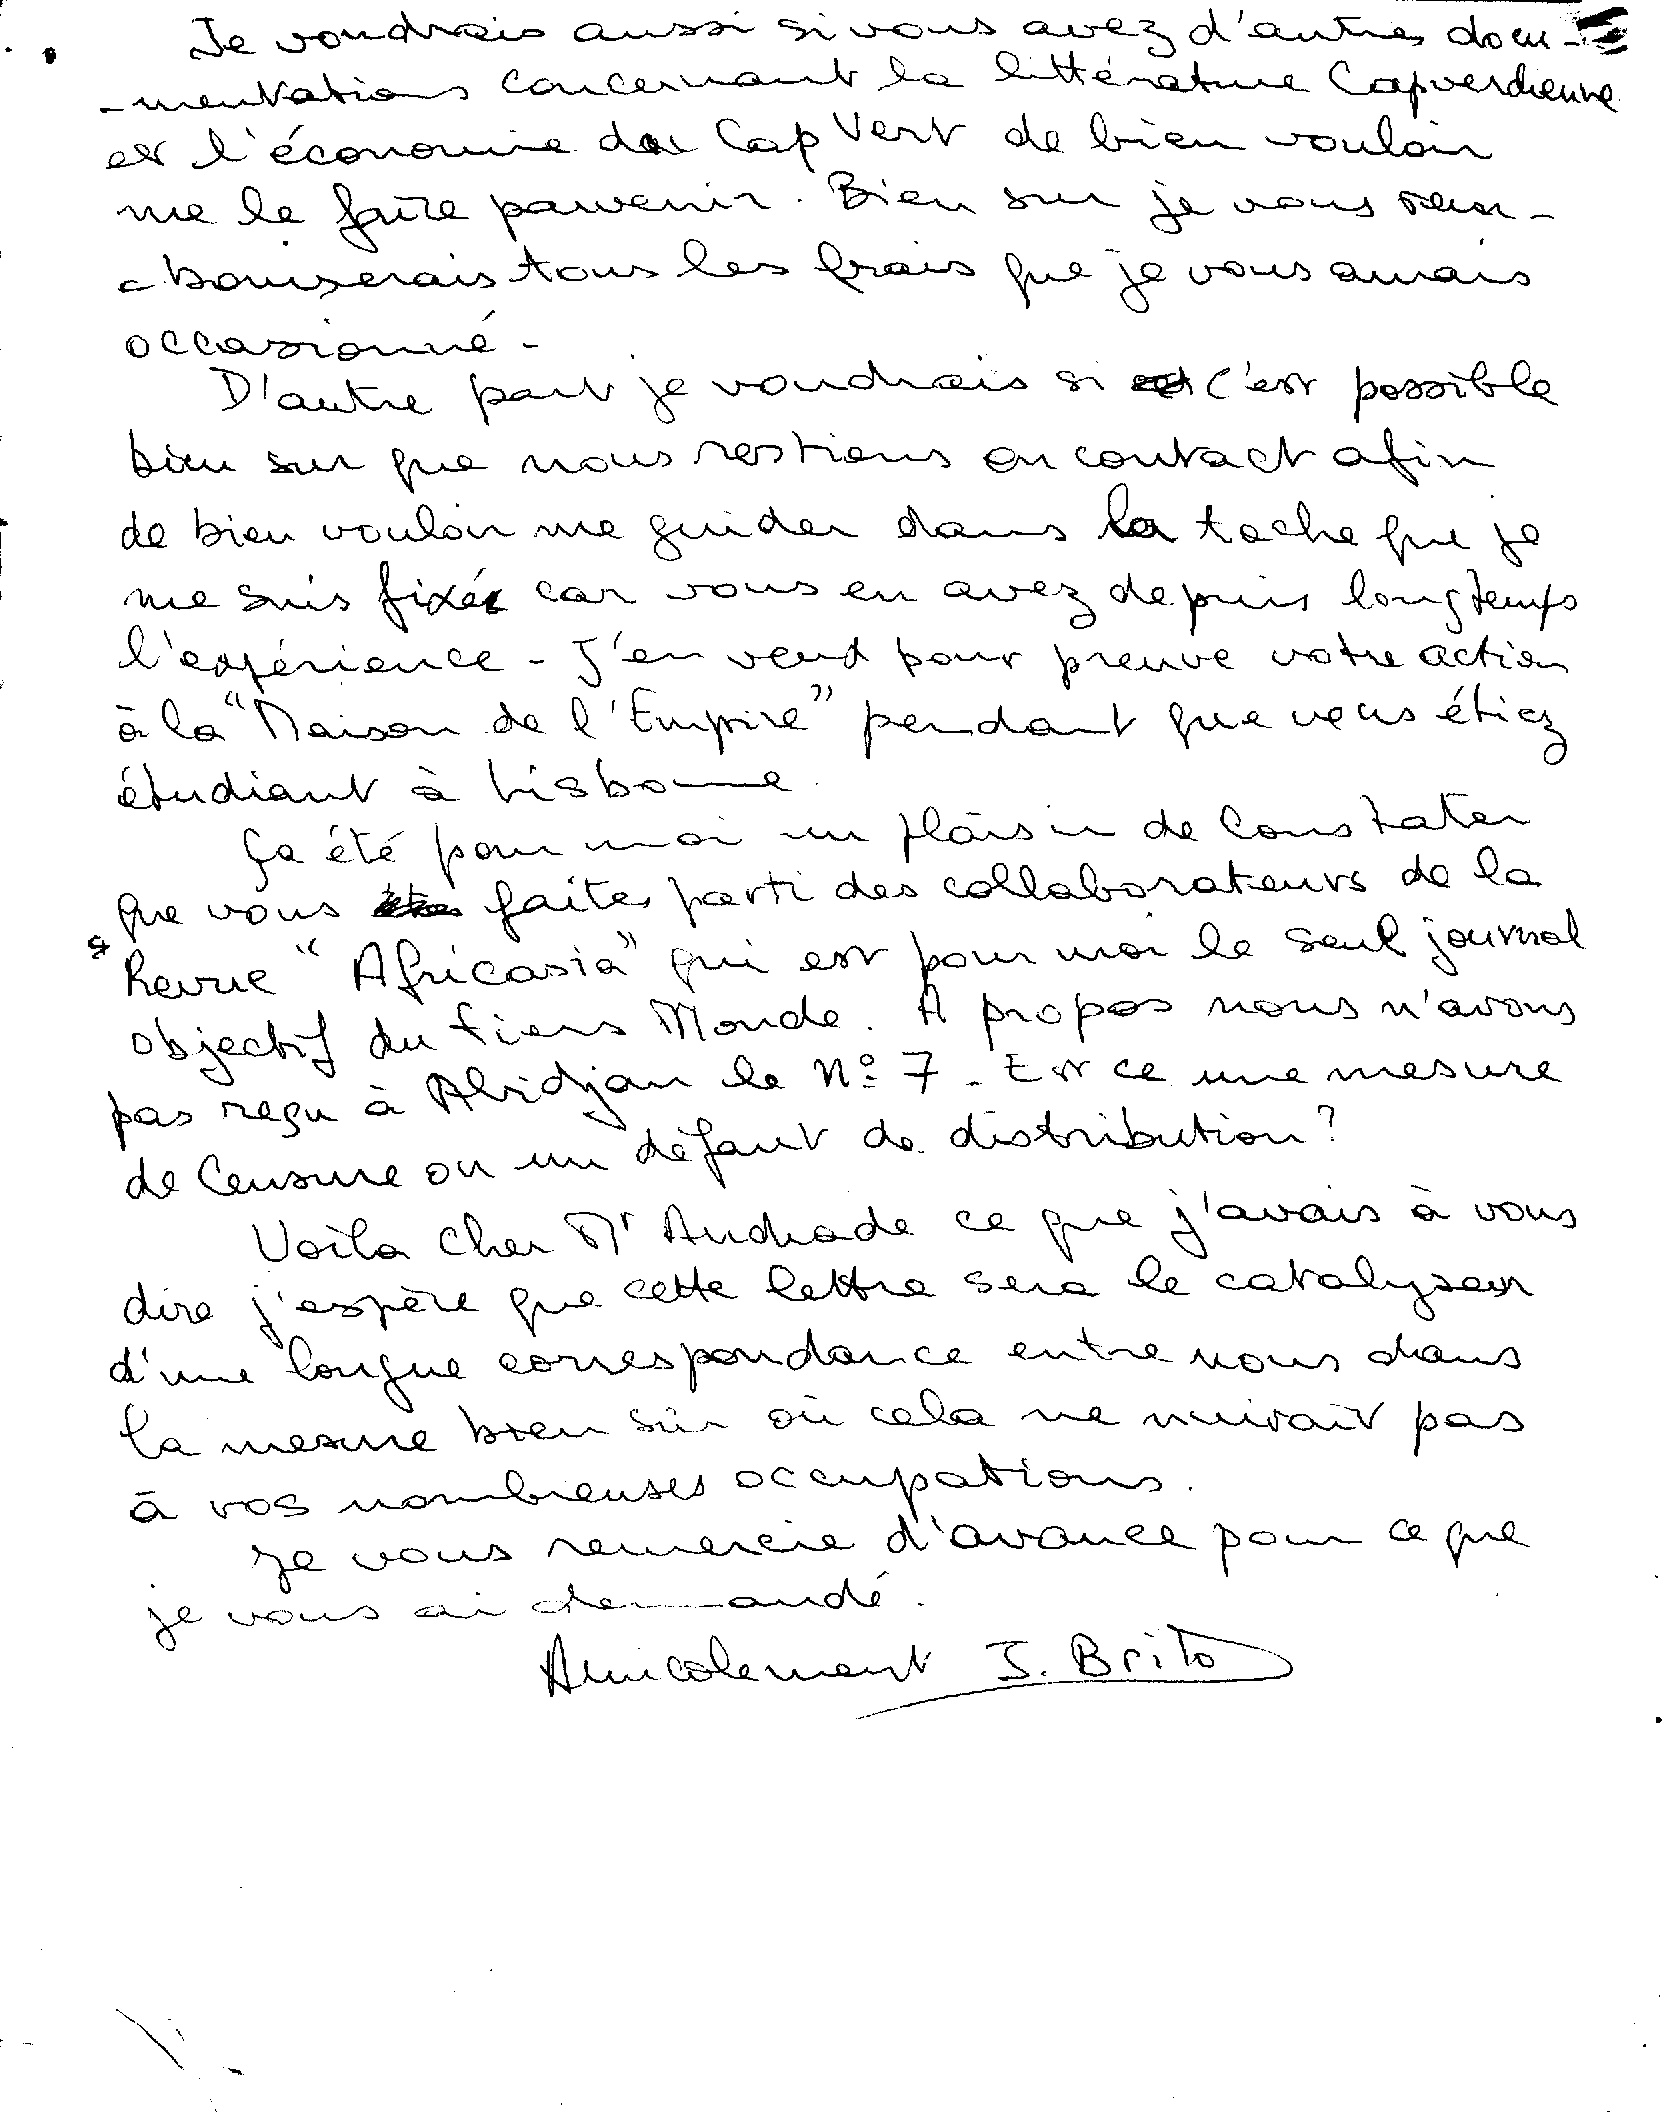 Je voudrais aussi si vous avez d'autres docu-
-mentations concernant la littérature Capverdienne
et l'économie du Cap Vert de bien vouloir
me le faire parvenir. Bien sur je vous rem-
-bourserais tous les frais que je vous aurais
occasionné -
D'autre part je voudrais si c'est possible
bien sur que nous restions en contact afin
de bien vouloir me guider dans la tache que je
me suis fixée car vous en avez depuis longtemps
l'expérience - J'en veud pour preuve votre action
à la "Maison de l'Empire" pendant que vous étiez
étudiant à Lisbonne.
Ça été pour moi un plaisir de constater
que vous faites parti des collaborateurs de la
Revue "Africasia" qui est pour moi le seul journal
objectif du tiers Monde. A propos nous n'avons
pas reçu à Abidjan le Nº 7 - Est ce une mesure
de censure ou un défaut de distribution?
Voila cher Mr Andrade ce que j'avais à vous
dire j'espère que cette lettre sera le catalyseur
d'une longue correspondance entre nous dans
la mesure bien sûr où cela ne nuirait pas
à vos nombreuses occupations.
Je vous remercie d'avance pour ce que
je vous ai demandé.
Amicalement J. Brito